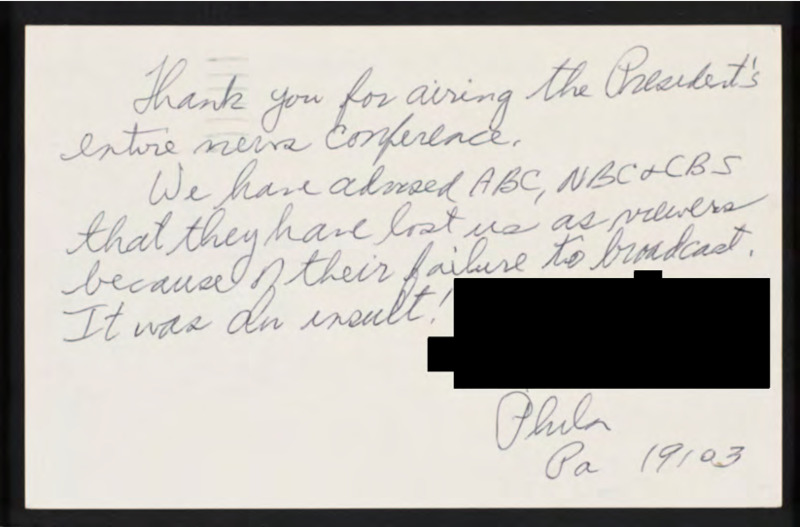 Thank you for airing the President's
entire news conference.
We have advised ABC, NBC & CBS
that they have lost us as viewers
because of their failure to broadcast.
It was an insult!
Phila
Pa 19103